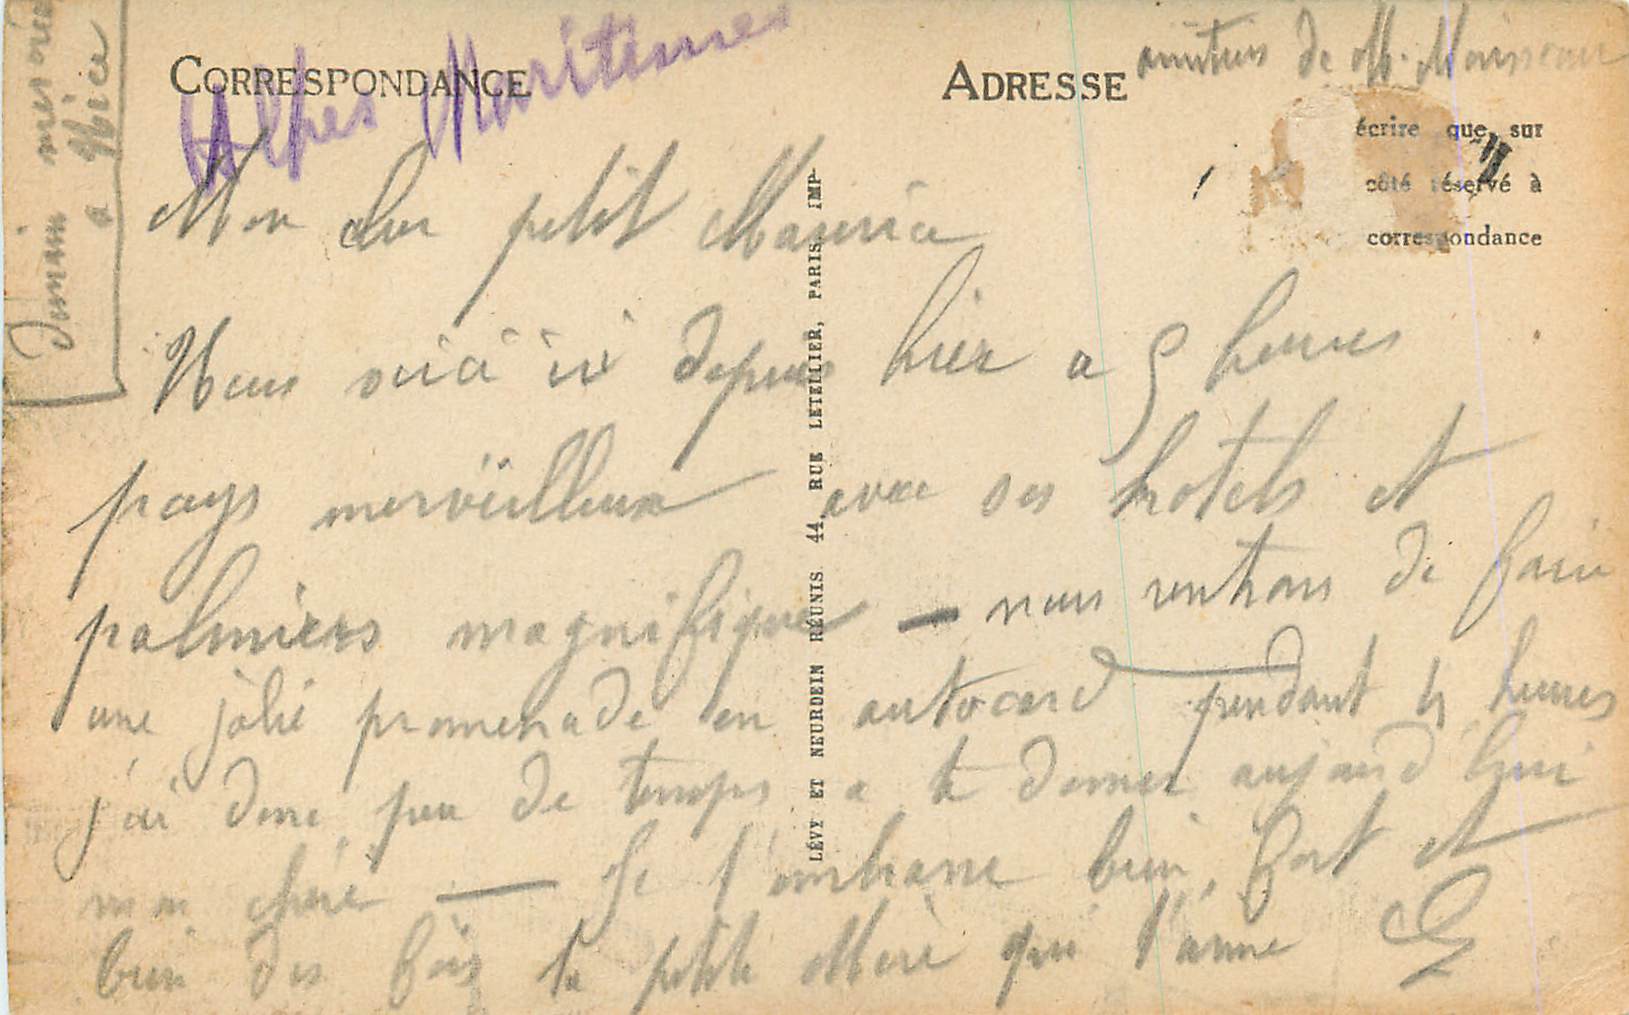 CORRESPONDANCE
ADRESSE
Alpes Maritimes
amitiés de M.
écrire que sur
côté réservé à
correspondance
Demain
a Nice
Mon cher petit Maurice
Nous voici ici depuis hier a 5 heures
pays merveilleux avec ses hotels et
palmiers magnifiques — nous rentrons de faire
une jolie promenade en autocard pendant 4 heures
j'ai donc peu de temps a te donner aujourd'hui
mon chéri — Je t'embrasse bien fort et
bien des fois ta petite Mère qui t'aime
G
LÉVY ET NEURDEIN RÉUNIS 44, RUE LETELLIER, PARIS IMP.